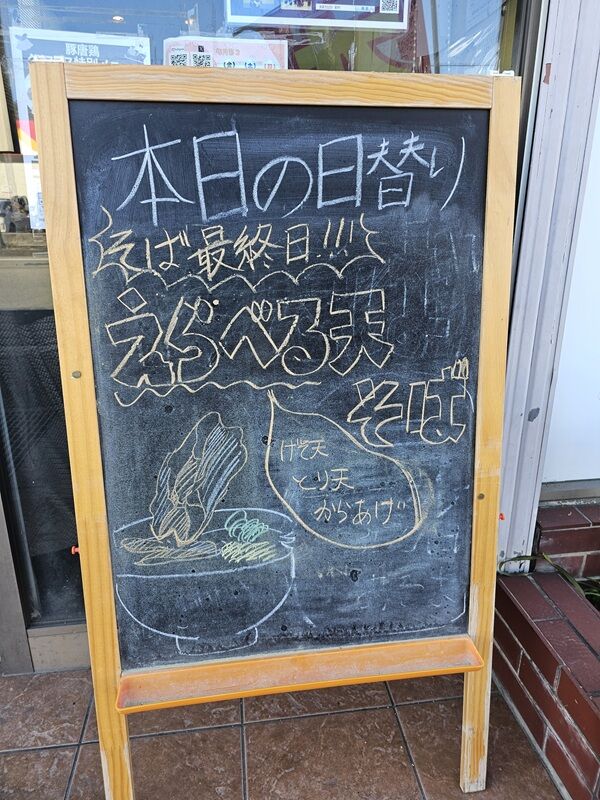 豚唐鶏
本日の日替り
そば最終日!!!
えらべる天
そば
げそ天
とり天
からあげ